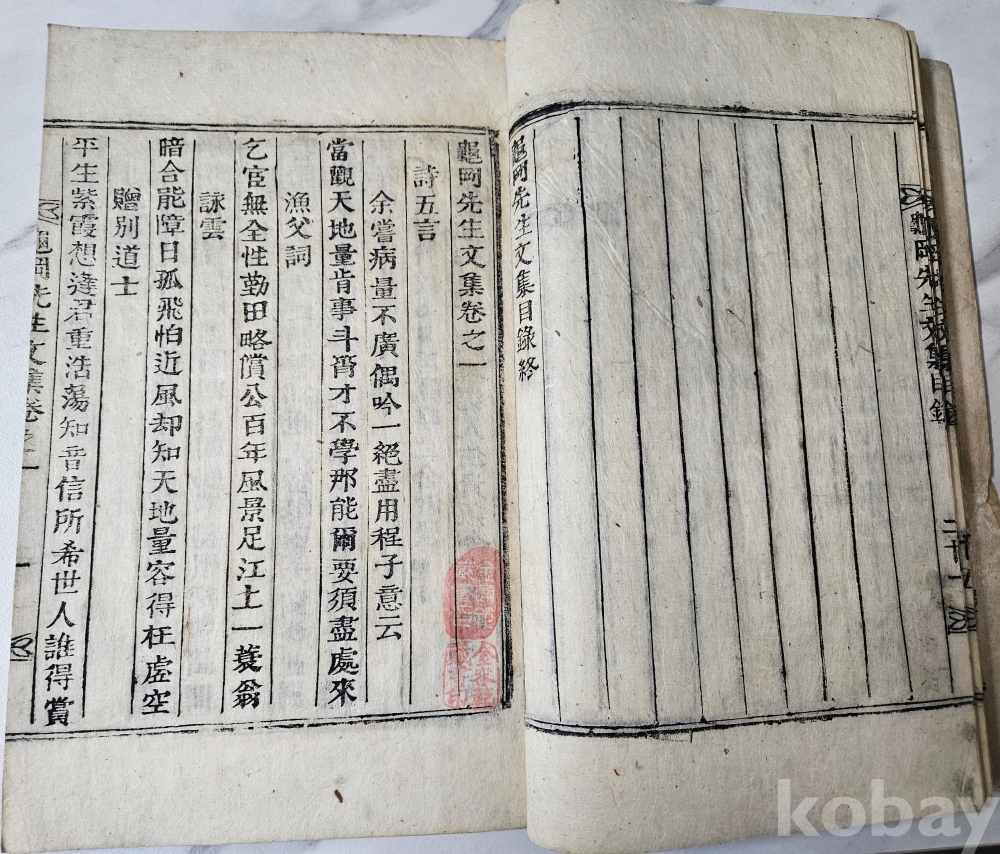 龜岡先生文集目錄
龜岡先生文集目錄終
龜岡先生文集卷之一
詩五言
余嘗病量不廣偶吟一絕盡用程子意云
當觀天地量肯事斗筲才不學那能爾要須盡處來
漁父詞
乞宦無全性勤田略償公百年風景足江土一蓑翁
詠雲
暗合能障日孤飛怕近風却知天地量容得在虛空
贈別道士
平生紫霞想逢君重浩蕩知音信所希世人誰得賞
龜岡先生文集卷之一
kobay